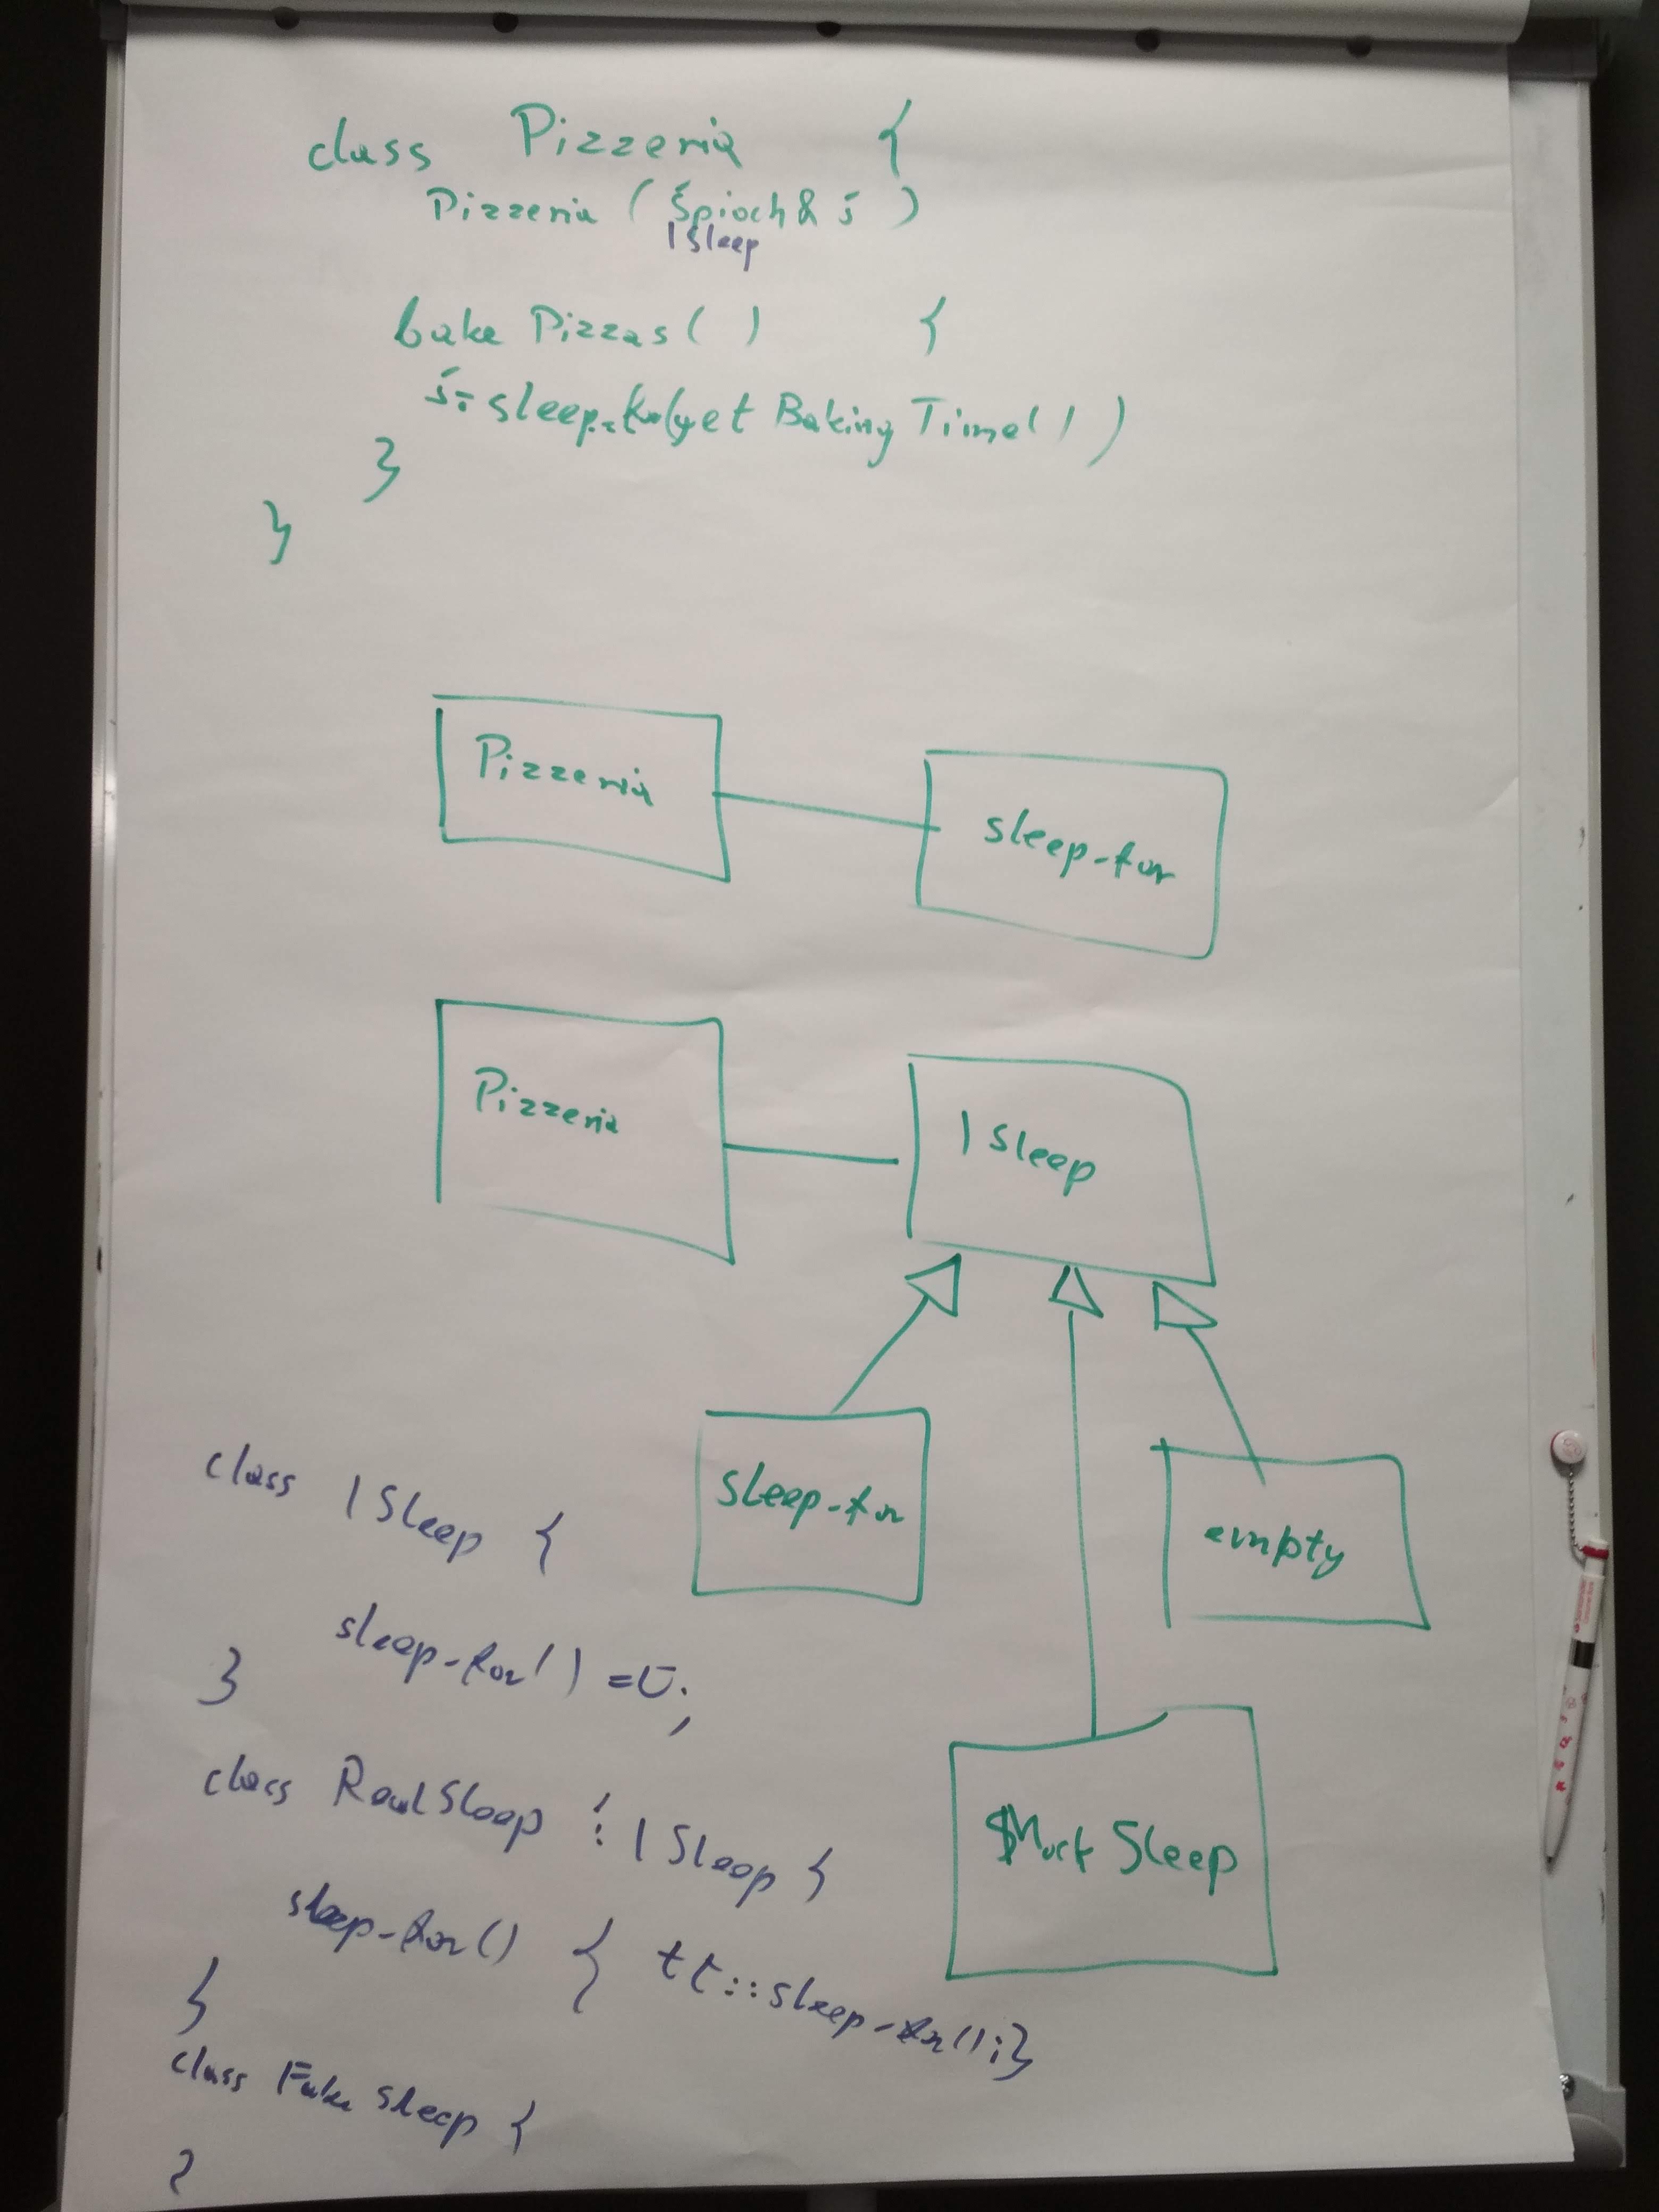 class Pizzeria {
Pizzeria ( Śpioch & ś )
ISleep
bake Pizzas ( ) {
ś. sleep_for(get Baking Time( ) )
}
}
Pizzeria
sleep-for
Pizzeria
ISleep
sleep-for
empty
Mock Sleep
class ISleep {
sleep-for( ) =0;
}
class RealSleep : ISleep {
sleep-for() { tt::sleep-for();}
}
class Fake Sleep {
}